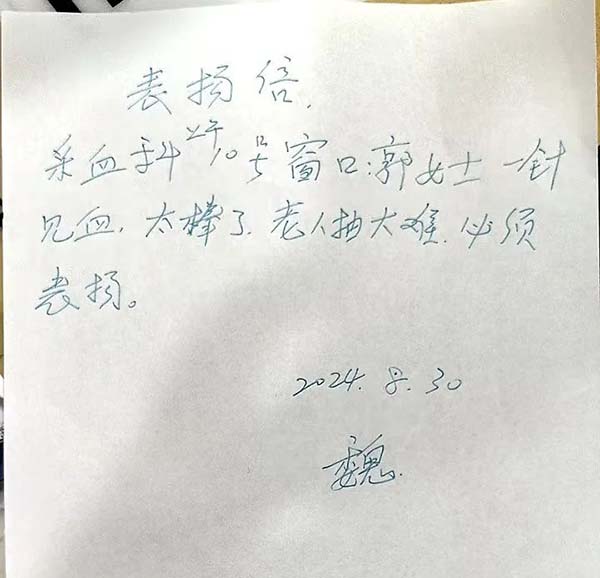 表扬信.
采血科上午10号窗口:郭女士 一针
见血，太棒了.老人抽太难.必须
表扬。
2024.8.30
魏